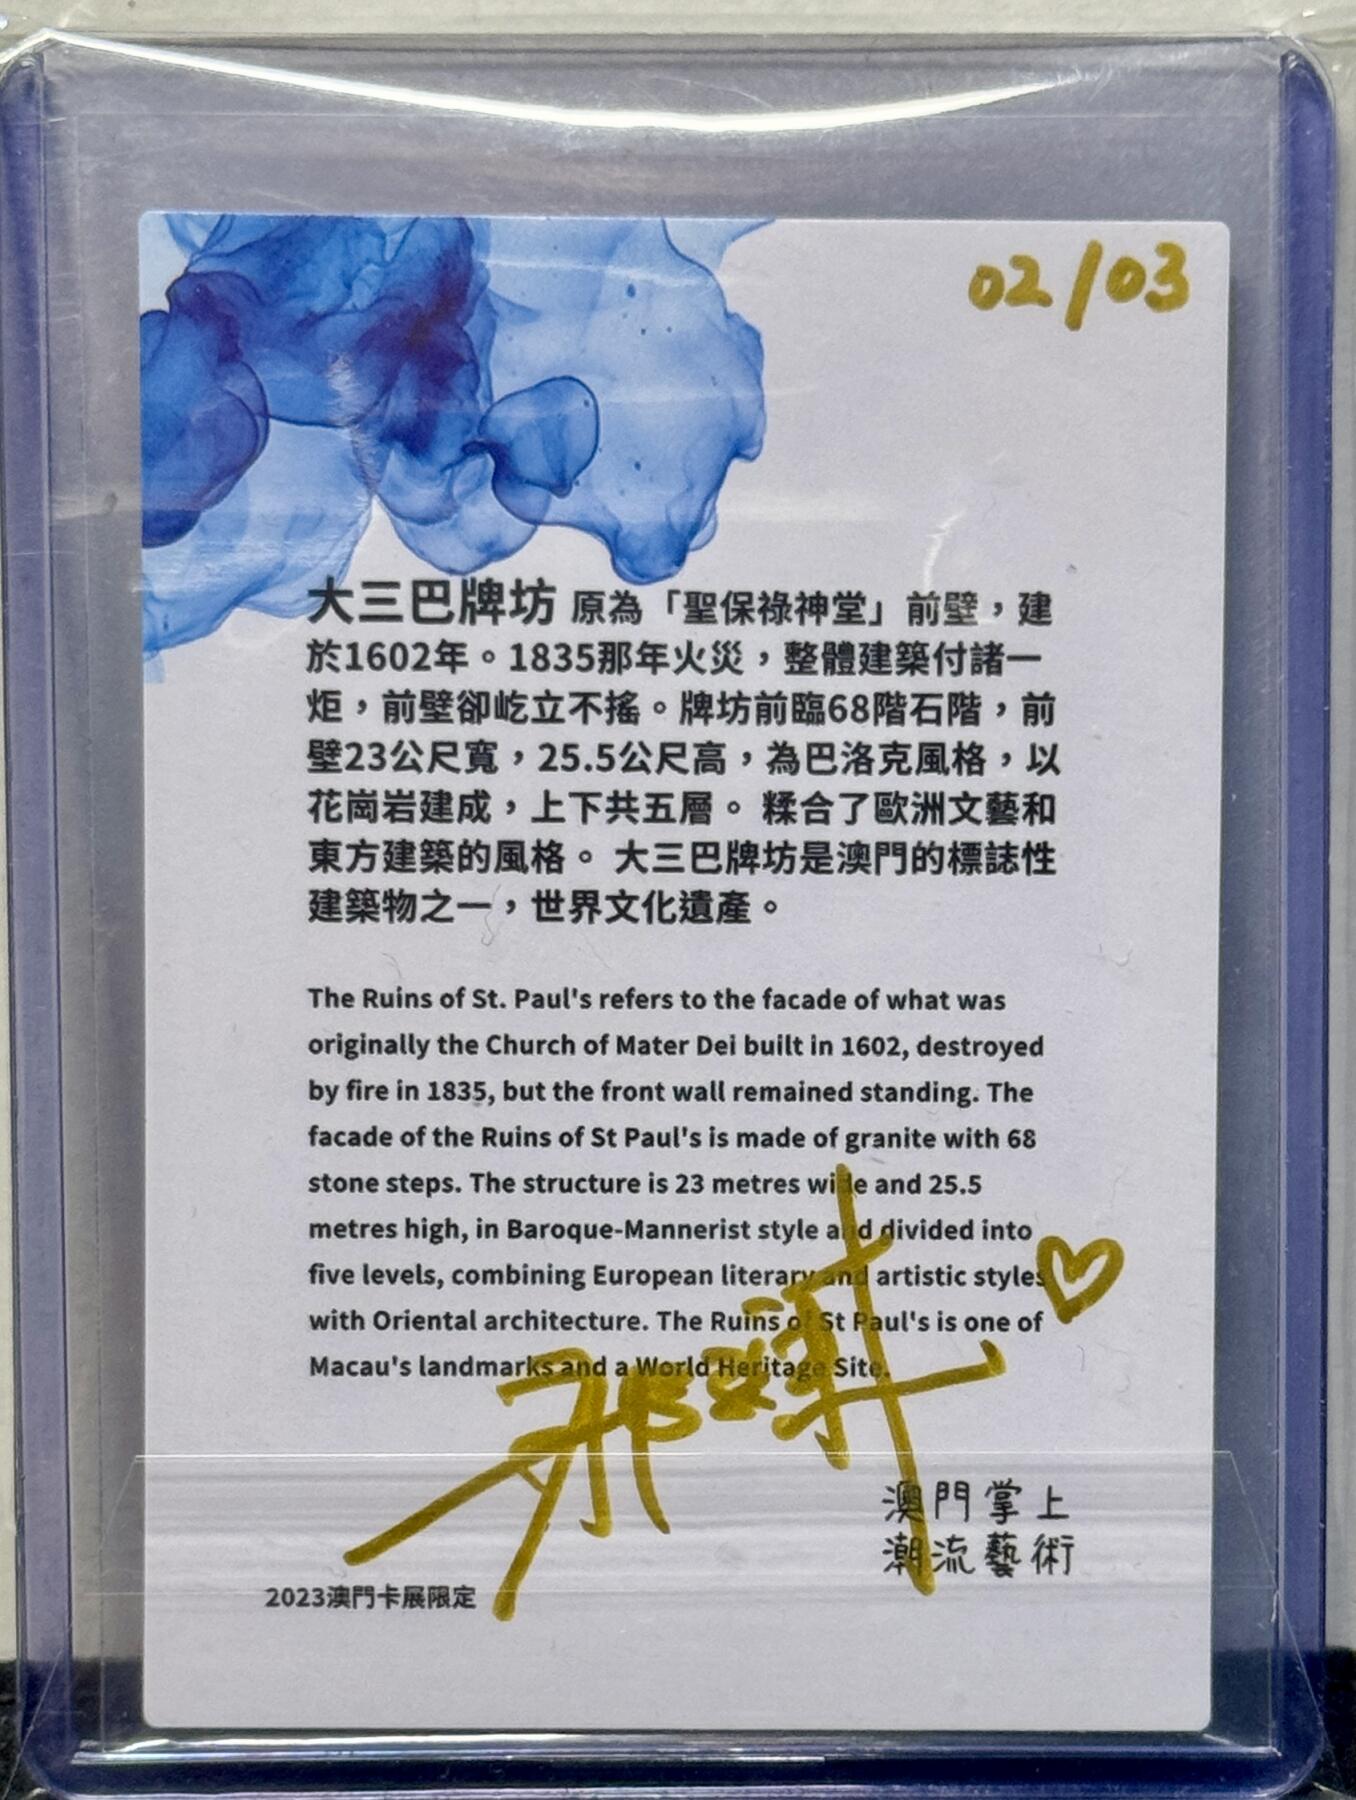 02/03
大三巴牌坊 原為「聖保祿神堂」前壁，建
於1602年。1835那年火災，整體建築付諸一
炬，前壁卻屹立不搖。牌坊前臨68階石階，前
壁23公尺寬，25.5公尺高，為巴洛克風格，以
花崗岩建成，上下共五層。 糅合了歐洲文藝和
東方建築的風格。 大三巴牌坊是澳門的標誌性
建築物之一，世界文化遺產。
The Ruins of St. Paul's refers to the facade of what was
originally the Church of Mater Dei built in 1602, destroyed
by fire in 1835, but the front wall remained standing. The
facade of the Ruins of St Paul's is made of granite with 68
stone steps. The structure is 23 metres wide and 25.5
metres high, in Baroque-Mannerist style and divided into
five levels, combining European literary and artistic styles
with Oriental architecture. The Ruins of St Paul's is one of
Macau's landmarks and a World Heritage Site.
澳門掌上
潮流藝術
2023澳門卡展限定